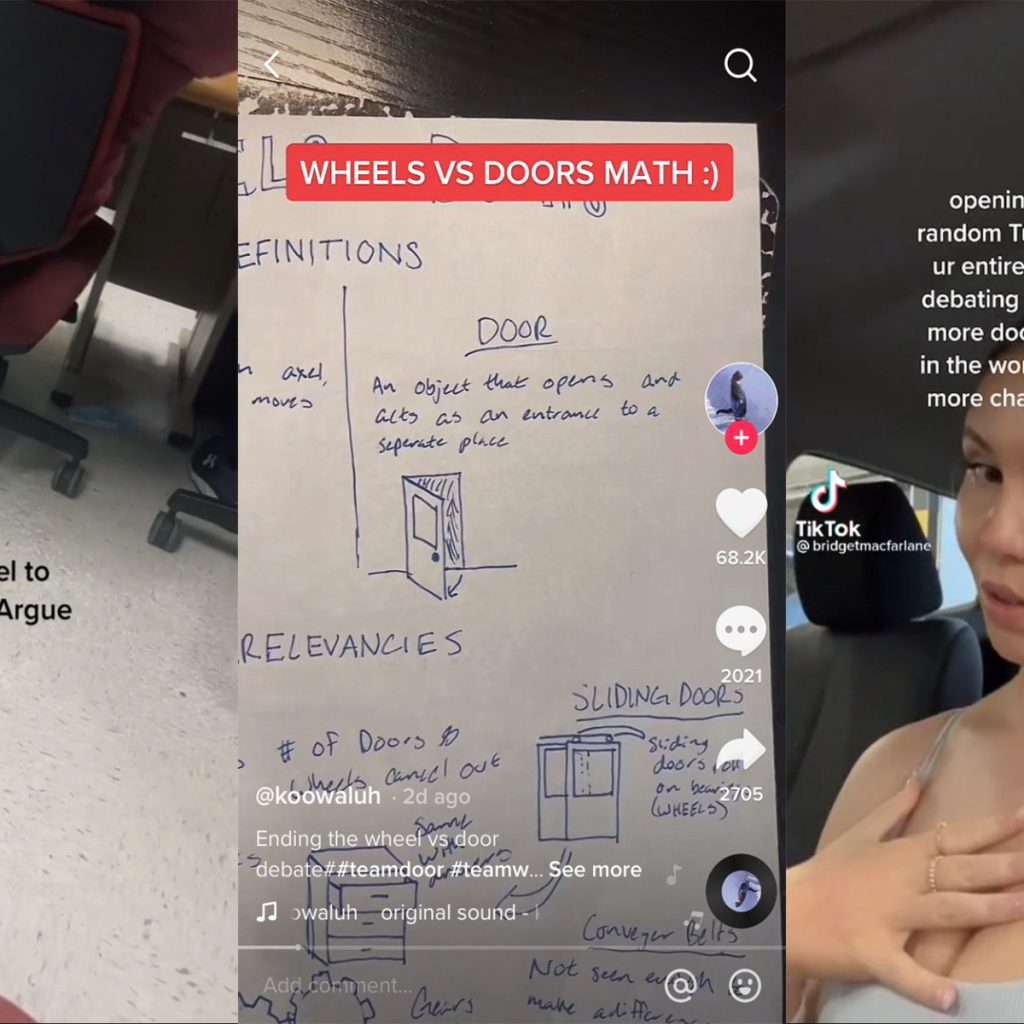 el to
Argue
WHEELS VS DOORS MATH :)
EFINITIONS
axel,
moves
DOOR
An object that opens and
acts as an entrance to a
seperate place
RELEVANCIES
# of Doors &
Wheels cancel out
SLIDING DOORS
Sliding
doors
on
(WHEELS)
same
Conveyer Belts
Not seen enough
make a
Gears
68.2K
2021
2705
@koowaluh · 2d ago
Ending the wheel vs door
debate##teamdoor #teamw... See more
owaluh original sound -
Add comment...
openin
random Tr
ur entire
debating
more doo
in the wor
more cha
TikTok
@bridgetmacfarlane